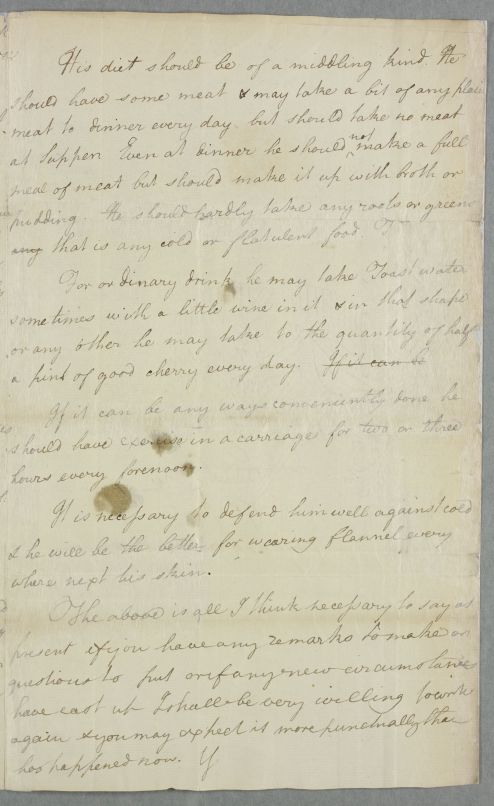 His diet should be of a middling kind. He
should have some meat & may take a bit of any plain
meat to dinner every day but should take no meat
at Supper. Even at dinner he should not make a full
meal of meat but should make it up with broth or
pudding. He should hardly take any roots or greens
any that is any cold or flatulent food.
For ordinary drink he may take Toast water
sometimes with a little wine in it & in that shape
or any other he may take to the quantity of half
a pint of good cherry every day. If it can be
If it can be any ways conveniently done he
should have exercise in a carriage for two or three
hours every forenoon.
It is necessary to defend him well against cold
& he will be the better for wearing flannel every
where next his skin.
The above is all I think necessary to say at
present & if you have any remarks to make or
questions to put or if any new circumstances
have cast up I shall be very willing to write
again & you may expect it more punctually than
has happened now. Y